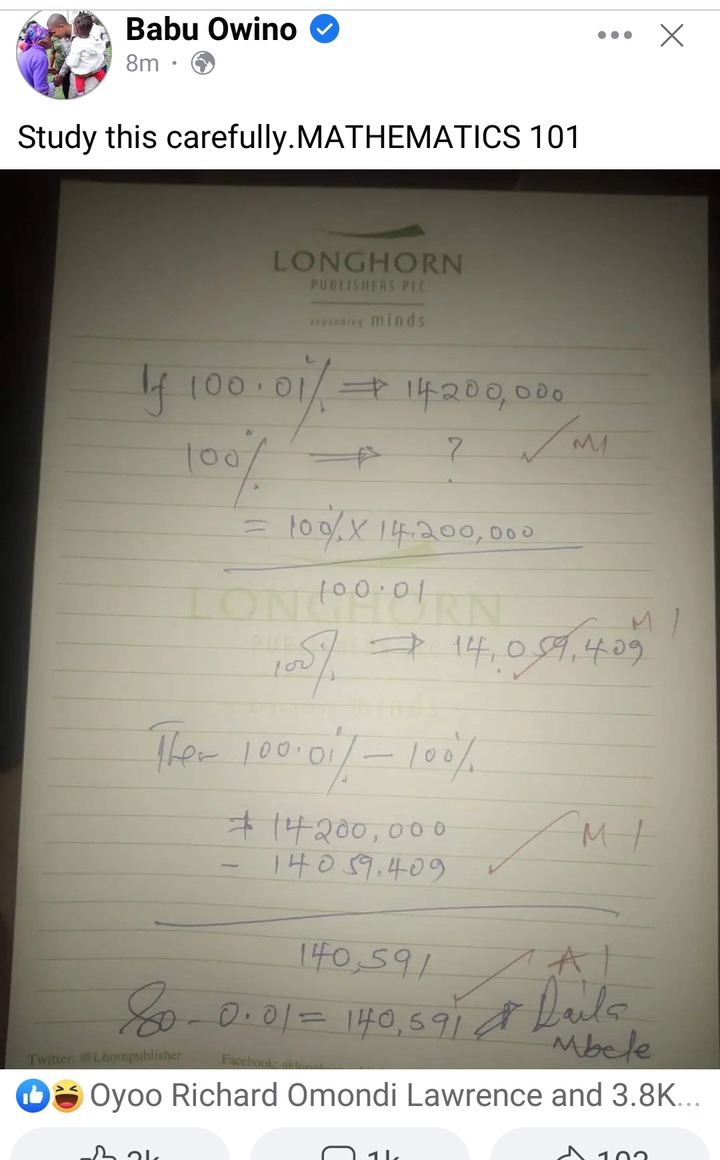 Babu Owino
8m
Study this carefully.MATHEMATICS 101
LONGHORN
PUBLISHERS PLC
expanding minds
If 100.01% ⇒ 14200,000
100% ⇒ ? ✓ M1
= 100% X 14.200,000
100.01
LONGHORN
100% ⇒ 14,059,409 ✓ M1
Then 100.01% - 100%
⇒ 14200,000
- 14059.409 ✓ M1
140,591 ✓ A1
So - 0.01 = 140,591 Raila
Mbele
Twitter: @Lhornpublisher Facebook:
Oyoo Richard Omondi Lawrence and 3.8K...
2k 1k 102